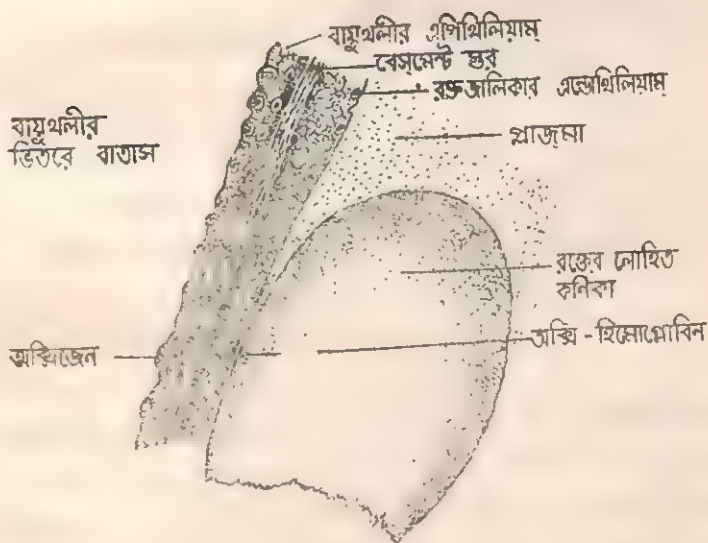 বায়ুথলীর এপিথিলিয়াম্
বেস্‌মেন্ট স্তর
রক্তজালিকার এন্ডোথিলিয়াম্
বায়ুথলীর
ভিতরে বাতাস
প্লাজ্‌মা
রক্তের লোহিত
কণিকা
অক্সিজেন
অক্সি - হিমোগ্লোবিন